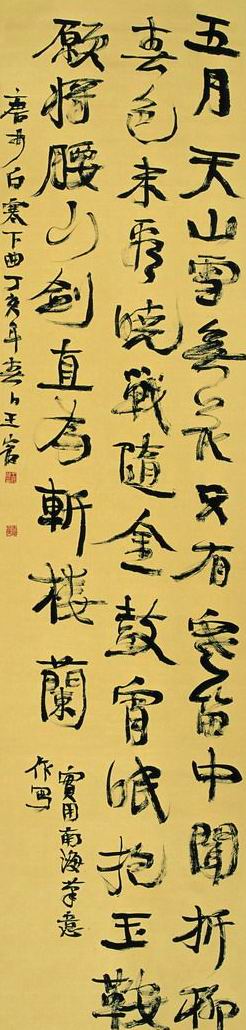 五月天山雪無花只有寒笛中聞折柳
春色未看曉戰隨金鼓宵眠抱玉鞍
願將腰下劍直為斬樓蘭
實用南海筆意
作寫
唐李白塞下曲丁亥年春